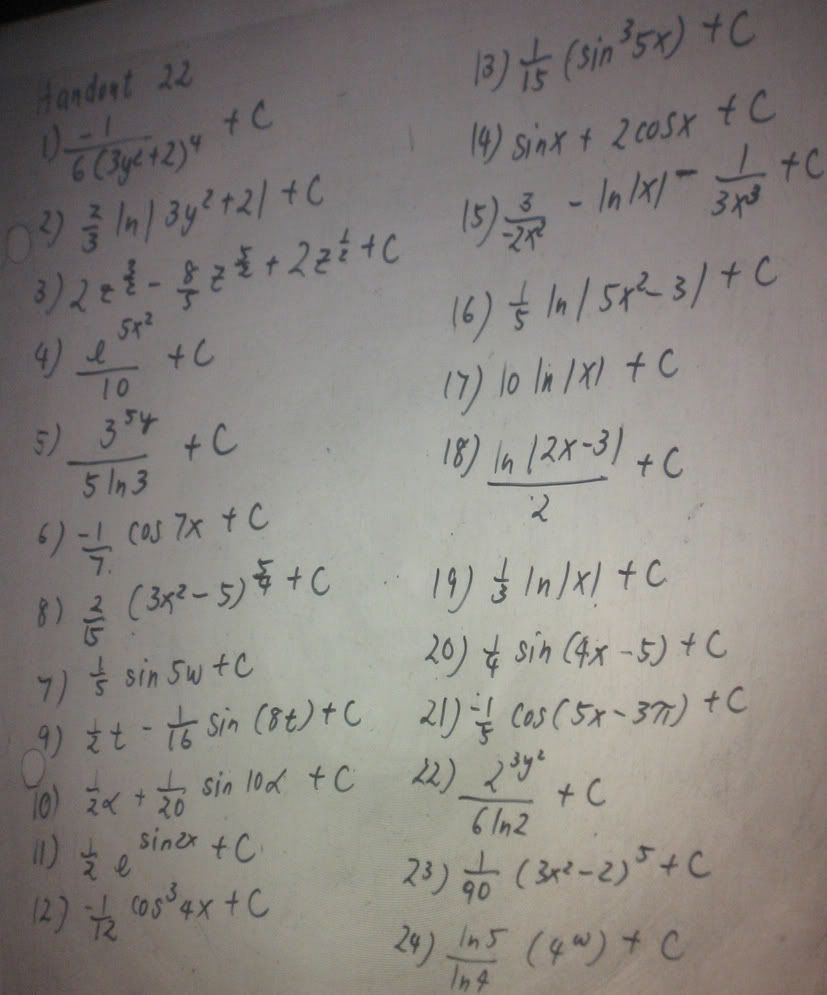 Handout 22
1) -1/6(3y²+2)⁴ + C
2) 2/3 ln|3y²+2| + C
3) 2z^(3/2) - 8/5 z^(5/2) + 2z^(1/2) + C
4) e^(5x²)/10 + C
5) 3^(5y)/(5 ln3) + C
6) -1/7 cos7x + C
8) 2/15 (3x²-5)^(5/4) + C
7) 1/5 sin5w + C
9) 1/2 t - 1/16 sin(8t) + C
10) 1/2 α + 1/20 sin10α + C
11) 1/2 e^(sin2x) + C
12) -1/12 cos³4x + C
13) 1/15 (sin³5x) + C
14) sinx + 2cosx + C
15) 3/(-2x²) - ln|x| - 1/(3x³) + C
16) 1/5 ln|5x²-3| + C
17) 10 ln|x| + C
18) ln|2x-3|/2 + C
19) 1/3 ln|x| + C
20) 1/4 sin(4x-5) + C
21) -1/5 cos(5x-3π) + C
22) 2^(3y²)/(6 ln2) + C
23) 1/90 (3x²-2)⁵ + C
24) ln5/ln4 (4^w) + C